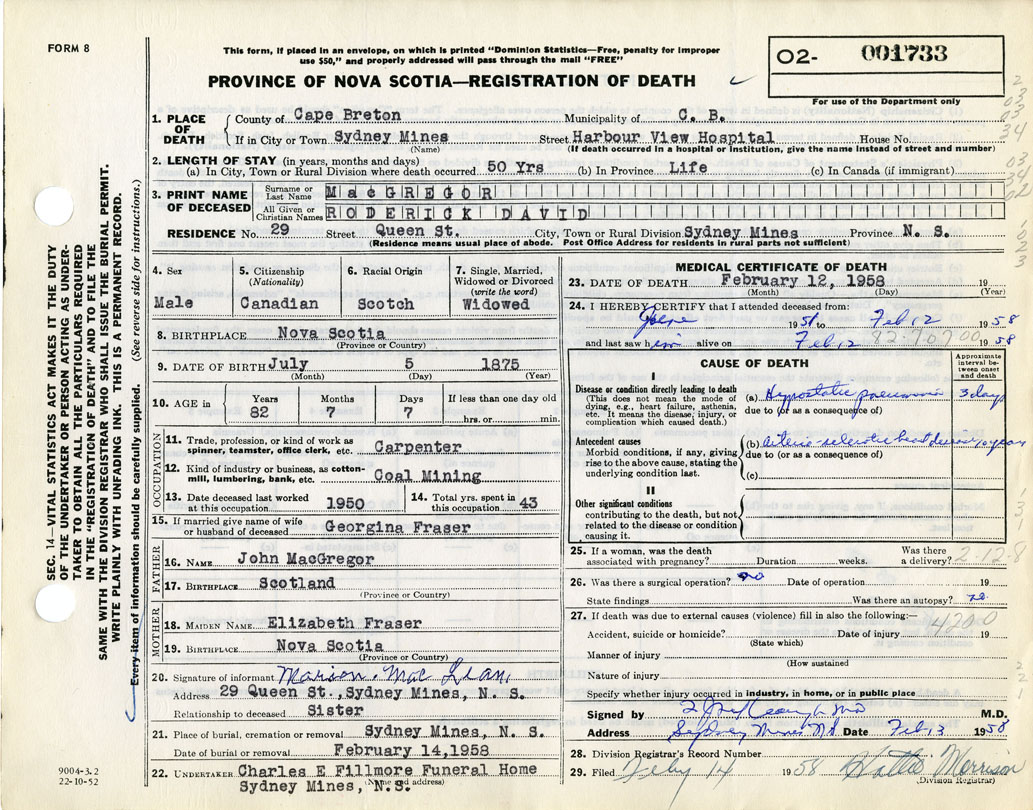 FORM 8
This form, if placed in an envelope, on which is printed "Dominion Statistics—Free, penalty for improper
use $50," and properly addressed will pass through the mail "FREE"
PROVINCE OF NOVA SCOTIA—REGISTRATION OF DEATH
02- 001733
For use of the Department only
1. PLACE OF DEATH County of Cape Breton Municipality of C. B.
If in City or Town Sydney Mines Street Harbour View Hospital House No.
(Name) (If death occurred in a hospital or institution, give the name instead of street and number)
2. LENGTH OF STAY (in years, months and days)
(a) In City, Town or Rural Division where death occurred 50 Yrs (b) In Province Life (c) In Canada (if immigrant)
3. PRINT NAME OF DECEASED Surname or Last Name MacGREGOR
All Given or Christian Names RODERICK DAVID
RESIDENCE No. 29 Street Queen St. City, Town or Rural Division Sydney Mines Province N. S.
(Residence means usual place of abode. Post Office Address for residents in rural parts not sufficient)
4. Sex
Male
5. Citizenship
(Nationality)
Canadian
6. Racial Origin
Scotch
7. Single, Married,
Widowed or Divorced
(write the word)
Widowed
8. BIRTHPLACE Nova Scotia
(Province or Country)
9. DATE OF BIRTH July 5 1875
(Month) (Day) (Year)
10. AGE in Years Months Days If less than one day
82 7 7 hrs. or min.
OCCUPATION
11. Trade, profession, or kind of work as
spinner, teamster, office clerk, etc. Carpenter
12. Kind of industry or business, as cotton-
mill, lumbering, bank, etc. Coal Mining
13. Date deceased last worked
at this occupation 1950
14. Total yrs. spent in
this occupation 43
15. If married give name of wife
or husband of deceased Georgina Fraser
FATHER
16. NAME John MacGregor
17. BIRTHPLACE Scotland
(Province or Country)
MOTHER
18. MAIDEN NAME Elizabeth Fraser
19. BIRTHPLACE Nova Scotia
(Province or Country)
20. Signature of informant Marion MacLean
Address 29 Queen St., Sydney Mines, N. S.
Relationship to deceased Sister
21. Place of burial, cremation or removal Sydney Mines, N. S.
Date of burial or removal February 14,1958
22. UNDERTAKER Charles E Fillmore Funeral Home
(Name and address)
Sydney Mines, N.S.
MEDICAL CERTIFICATE OF DEATH
23. DATE OF DEATH February 12, 1958 19
(Month) (Day) (Year)
24. I HEREBY CERTIFY that I attended deceased from:
19 51 to Feb 12 19 58
and last saw him alive on Feb 12 19 58
82.707.00
CAUSE OF DEATH
Approximate
interval be-
tween onset
and death
I
Disease or condition directly leading to death
(This does not mean the mode of
dying, e.g., heart failure, asthenia,
etc. It means the disease, injury, or
complication which caused death.)
(a) Hypostatic pneumonia 3 days
due to (or as a consequence of)
Antecedent causes
Morbid conditions, if any, giving
rise to the above cause, stating the
underlying condition last.
(b) Arterio-sclerotic heart disease 10 years
due to (or as a consequence of)
(c)
II
Other significant conditions
contributing to the death, but not
related to the disease or condition
causing it.
25. If a woman, was the death
associated with pregnancy? Duration weeks. Was there
a delivery?
2.12.8
26. Was there a surgical operation? no Date of operation 19
State findings Was there an autopsy? no
27. If death was due to external causes (violence) fill in also the following:—
4200
Accident, suicide or homicide? Date of injury 19
(State which)
Manner of injury
(How sustained
Nature of injury
Specify whether injury occurred in industry, in home, or in public place
Signed by M.D.
Address Sydney Mines NS Date Feb 13 1958
28. Division Registrar's Record Number
29. Filed Feby 14 1958 Hattie Morrison
(Division Registrar)
SEC. 14—VITAL STATISTICS ACT MAKES IT THE DUTY
OF THE UNDERTAKER OR PERSON ACTING AS UNDER-
TAKER TO OBTAIN ALL THE PARTICULARS REQUIRED
IN THE "REGISTRATION OF DEATH" AND TO FILE THE
SAME WITH THE DIVISION REGISTRAR WHO SHALL ISSUE THE BURIAL PERMIT.
WRITE PLAINLY WITH UNFADING INK. THIS IS A PERMANENT RECORD.
Every item of information should be carefully supplied. (See reverse side for instructions.)
9004-3.2
22-10-52